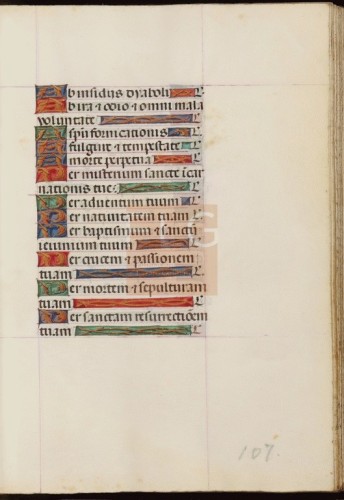 Ab insidiis dyaboli L
Ab ira & odio & omni mala
voluntate L
A spũ fornicationis L
A fulgure & tempestate L
A morte perpetua L
Per misterium sancte ĩcar
nationis tue L
Per adventum tuum L
Per nativitatem tuam L
Per baptismum & sanctũ
ieiunium tuum L
Per crucem & passionem
tuam L
Per mortem & sepulturam
tuam L
Per sanctam resurrectiõem
tuam L
107.